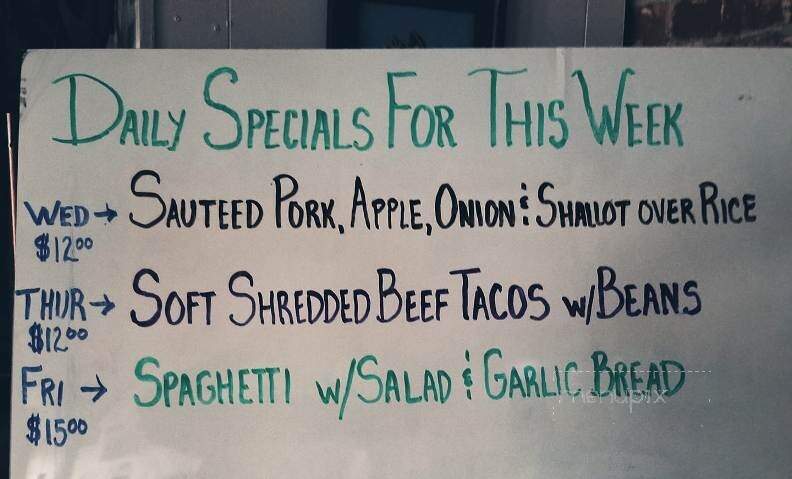 DAILY SPECIALS FOR THIS WEEK
WED → SAUTEED PORK, APPLE, ONION & SHALLOT OVER RICE
$12.00
THUR → SOFT SHREDDED BEEF TACOS W/BEANS
$12.00
FRI → SPAGHETTI W/SALAD & GARLIC BREAD
$15.00
menupix